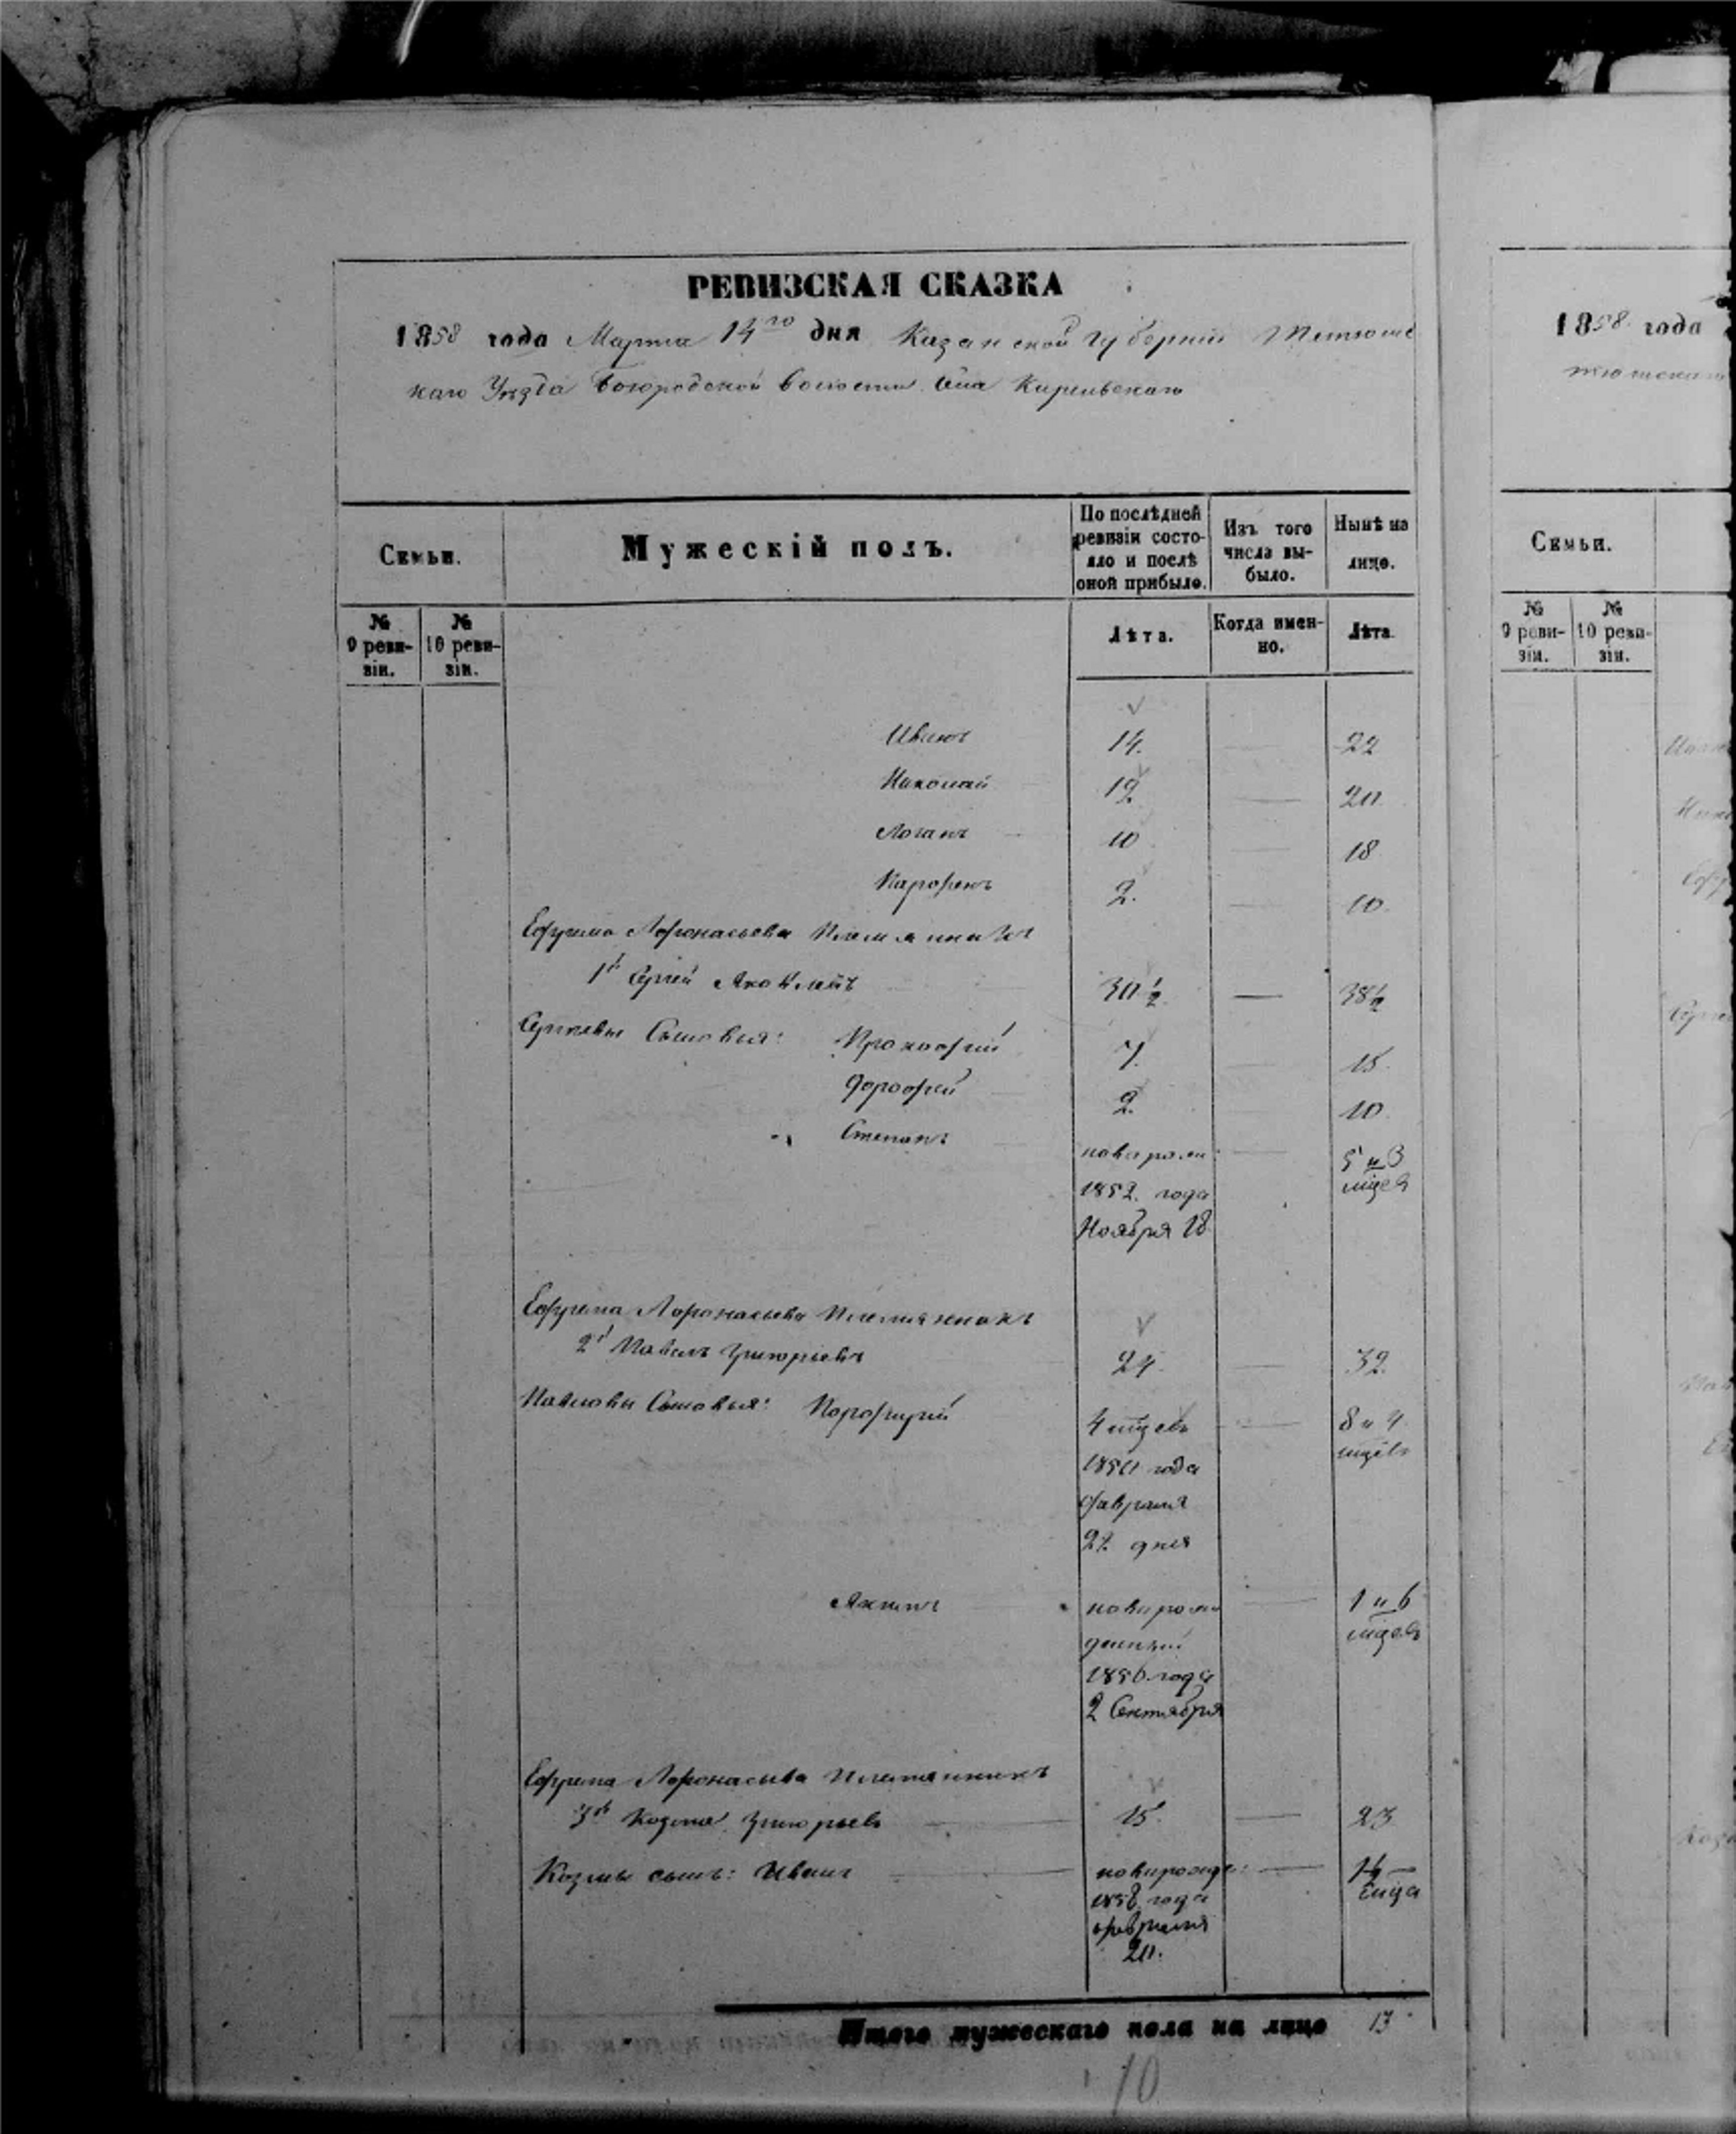 РЕВИЗСКАЯ СКАЗКА
1858 года Марта 14го дня Казанской Губернии Тетюшс
каго Уѣзда Богородской волости Села Кирельскаго
Семьи.
Мужескій полъ.
По послѣдней ревизіи состо-
яло и послѣ
оной прибыло.
Изъ того
числа вы-
было.
Нынѣ на
лицо.
№
9 реви-
зіи.
№
10 реви-
зіи.
Лѣта.
Когда имен-
но.
Лѣта.
Иванъ 14. 22
Николай 12 20
Логинъ 10 18
Парфенъ 2. 10.
Ефрема Афонасьева Племянникъ
1й Сергей Яковлевъ 30½ 38½
Сергѣевы Сыновья: Прокофий 7. 15.
Дорофей 2. 10.
Степанъ новорож: 5 и 3
1852. года мцев
Ноября 18
Ефрема Афонасьева Племянникъ
2й Павелъ Григорьевъ 24. 32.
Павловы Сыновья: Порфирий 4 мцевъ 8 и 4
1850 года мцевъ
февраля
22 дня
Акимъ новорож 1 и 6
денный мцевъ
1856 года
2 Сентября
Ефрема Афонасьева Племянникъ
3й Козма Григорьевъ 15. 23
Козмы сынъ: Иванъ новорожде: 1½
1858 года
февраля
20.
Итого мужескаго пола на лицо 13
10
1858 года
Семьи.
№
9 реви-
зіи.
№
10 реви-
зіи.